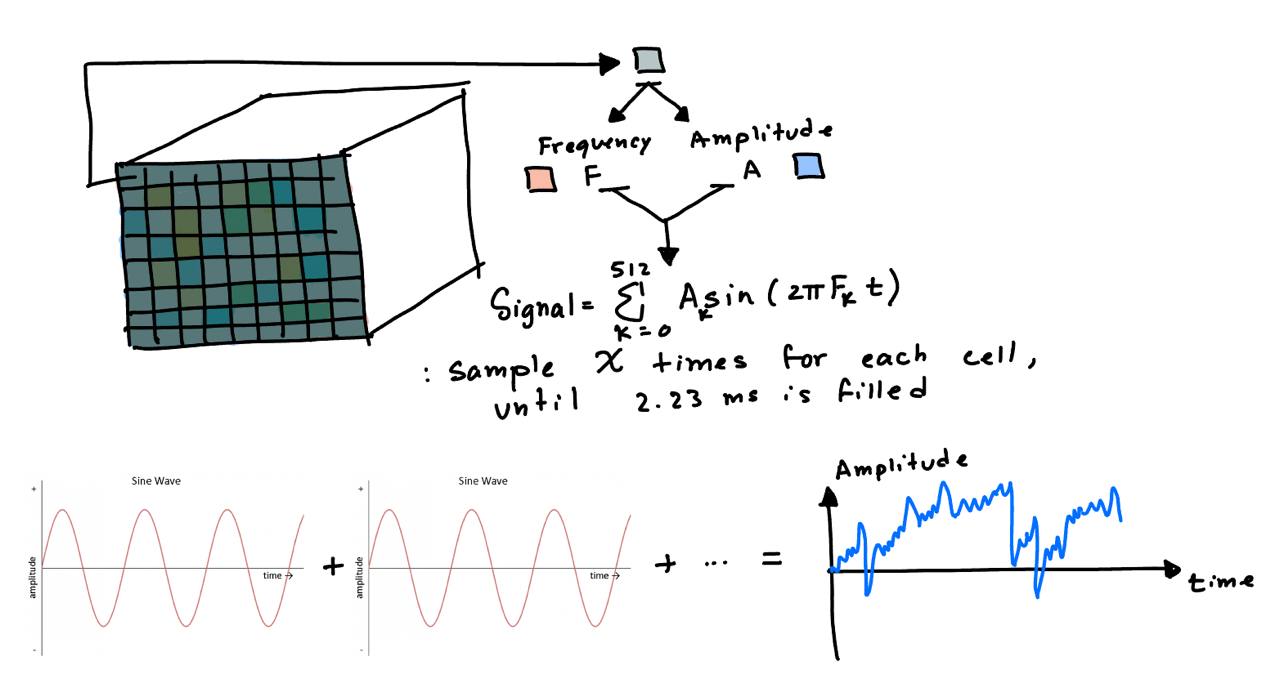 Frequency Amplitude
F A
512
Signal = Σ Aₖ sin (2π Fₖ t)
k = 0
: sample x times for each cell,
until 2.23 ms is filled
Sine Wave
+
amplitude
time →
-
+
Sine Wave
+
amplitude
time →
-
+ ... =
Amplitude
time